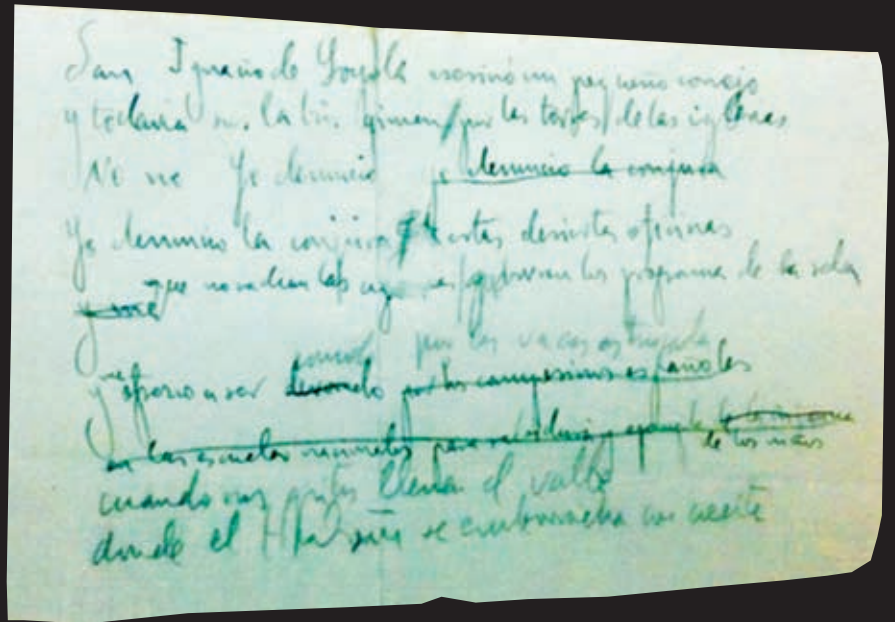 San Ignacio de Loyola asesinó un pequeño conejo
y todavia sus labios gimen por las torres de las iglesias
No no Yo denuncio yo denuncio la conjura
Yo denuncio la conjura de estas desiertas oficinas
y me que no radian las agonias que borran los programas de la selva
comido por las vacas estrujadas
y me ofrezco a ser devorado por los campesinos españoles
en las escuelas nacionales para sabiduria y ejemplo de los niños
cuando sus gritos llenan el valle
donde el Hudson se emborracha con aceite